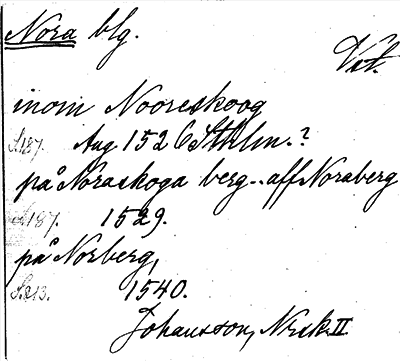 Nora blg.
Vstl.
inom Nooreskoog
S.187. Aug 1526 Sthlm.?
på Noraskoga berg.. aff Noraberg
S.187. 1529.
på Norberg,
S.213. 1540.
Johansson, Norsk. II